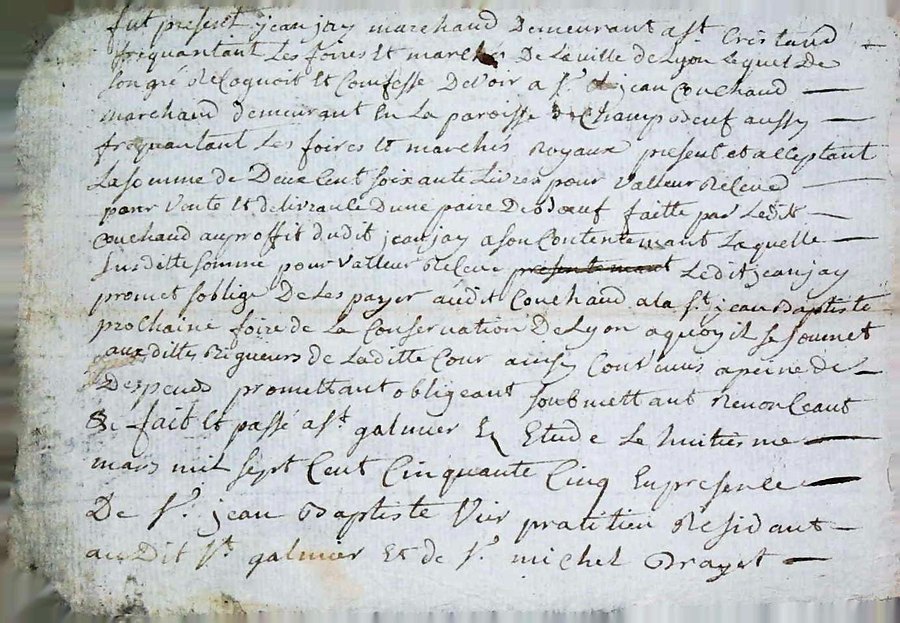 fut present jean jay marchand Demeurant a St. Cristaud
frequantant Les foires Et marches De La ville de Lyon Lequel De
Son gre Recognoit Et Confesse Devoir a Sr. jean Couchaud
marchand demeurant En La paroisse de Champdoeuf aussy
frequantant Les foires Et marchés Royaux present et acceptant
La somme de Deux Cent soixante Livres pour Valleur Receue
pour Vente Et delivrance Dune paire De boeuf faitte par Ledit
Couchaud au proffit dudit jean jay a son Contentemant Laquelle
Susditte somme pour Valleur Receue presentemant Ledit jean jay
promet soblige De Les payer audit Couchaud a la St. jean Baptiste
prochaine foire de La Conservation De Lyon a quoy il se soumet
aux dittes Rigueurs de Laditte Cour ainsy Convenus a peine de
Despends promettant obligeant soubmettant Renonceant
&c fait Et passé a St. galmier En Etude Le huitiesme
mars mil sept Cent Cinquante Cinq En presence
De Sr. jean Baptiste Vier pratitien Residant
audit St. galmier Et de Sr. michel Drayet